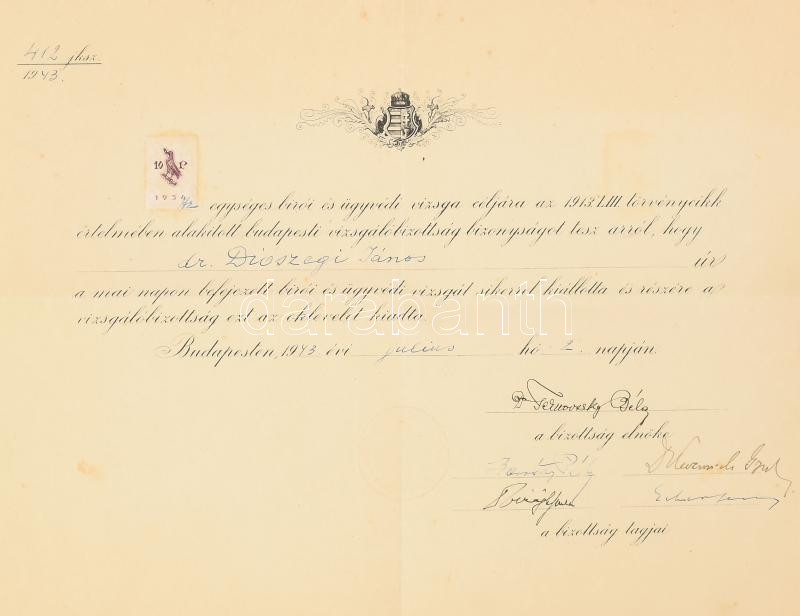 412 jksz.
1943.
10 P
1934
Az egységes birói és ügyvédi vizsga céljára az 1913:LIII. törvénycikk
értelmében alakított budapesti vizsgálóbizottság bizonyságot tesz arról, hogy
dr. Diószegi János úr
a mai napon befejezett birói és ügyvédi vizsgát sikerrel kiállotta és részére a
vizsgálóbizottság ezt az oklevelet kiadta.
darabanth
Budapesten, 1943. évi julius hó 2. napján.
Dr Ternovszky Béla
a bizottság elnöke
a bizottság tagjai